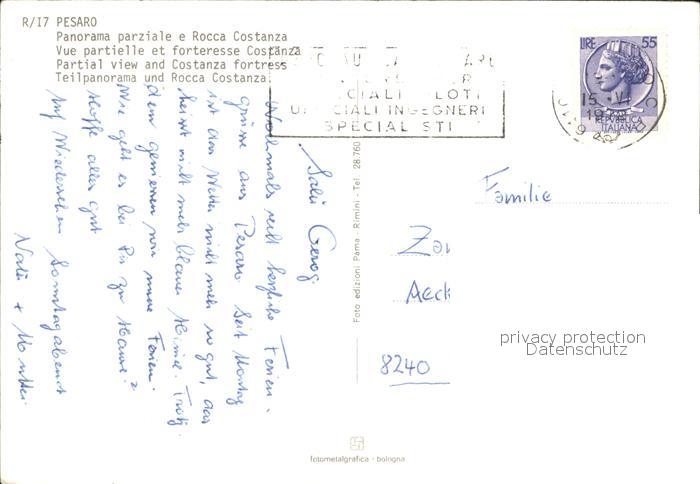 R/I7 PESARO
Panorama parziale e Rocca Costanza
Vue partielle et forteresse Costanza
Partial view and Costanza fortress
Teilpanorama und Rocca Costanza
CIALI PILOTI
UFFICIALI INGEGNERI
SPECIALISTI
LIRE 55
REPUBBLICA
ITALIANA
15 VI
Salü
Nochmals recht herzliche Ferien-
grüsse aus Pesaro. Seit Montag
ist das Wetter nicht mehr so gut, das
heisst nicht mehr blauer Himmel. Trotz-
dem geniessen wir unsere Ferien.
Wie geht es bei Dir zu Hause?
Hoffe alles gut
Auf Wiedersehen Sonntagabend
+ Mutter
Foto edizioni Pama - Rimini - Tel. 28.760
Familie
8240
fotometalgrafica - bologna
privacy protection
Datenschutz